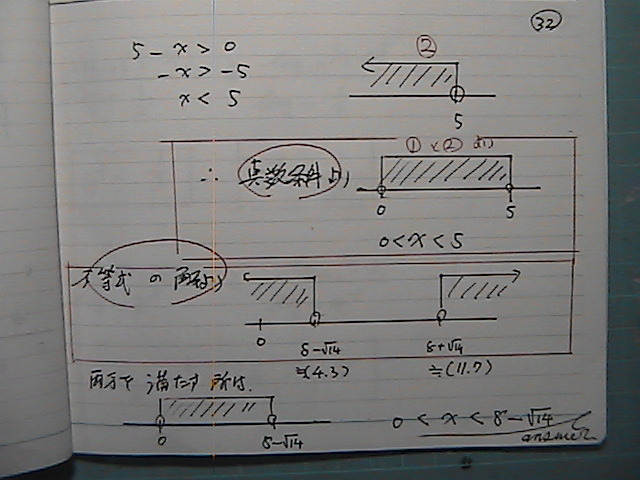 32
5 - x > 0
- x > -5
x < 5
②
5
∴ 真数条件より
①と②より
0 5
0 < x < 5
不等式の解より
0 8-√14 8+√14
≒(4.3) ≒(11.7)
両方で満たす所は、
0 8-√14
0 < x < 8-√14
answer